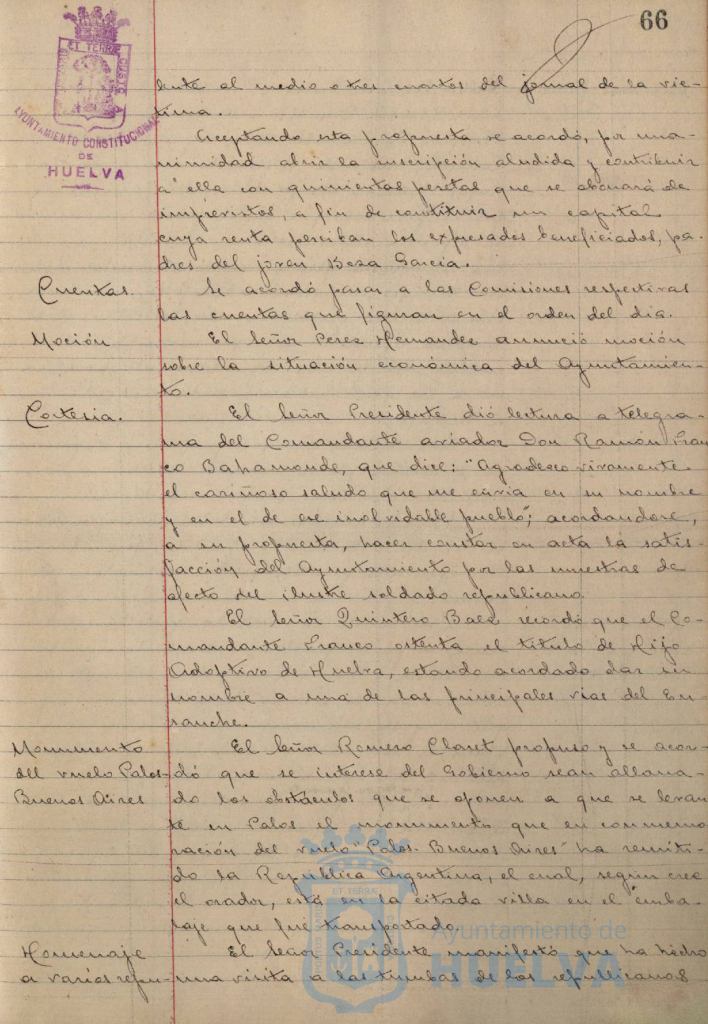 66
PORTUS MARIS ET TERRAE CUSTODIA
AYUNTAMIENTO CONSTITUCIONAL
DE
HUELVA
lente al medio o tres cuartos del jornal de la víc-
tima.
Aceptando esta propuesta se acordó, por una-
nimidad abrir la inscripción aludida y contribuir
a ella con quinientas pesetas que se abonará de
imprevistos, a fin de constituir un capital
cuya renta perciban los expresados beneficiados, pa-
dres del joven Beza García.
Cuentas.
Se acordó pasar a las Comisiones respectivas
las cuentas que figuran en el orden del día.
Moción
El Señor Perez Hernandez anunció moción
sobre la situación económica del Ayuntamien-
to.
Cortesia.
El Señor Presidente dió lectura a telegra-
ma del Comandante aviador Don Ramón Fran
co Bahamonde, que dice: "Agradezco vivamente
el cariñoso saludo que me envia en su nombre
y en el de ese inolvidable pueblo"; acordandose,
a su propuesta, hacer constar en acta la satis-
facción del Ayuntamiento por las muestras de
afecto del ilustre soldado republicano.
El Señor Quintero Baez recordó que el Co-
mandante Franco ostenta el título de Hijo
Adoptivo de Huelva, estando acordado dar su
nombre a una de las principales vías del En
sanche.
Monumento
del vuelo Palos-
Buenos Aires
El Señor Romero Claret propuso y se acor-
dó que se interese del Gobierno sean allana-
do los obstáculos que se oponen a que se levan
te en Palos el monumento que en conmemo
ración del vuelo "Palos-Buenos Aires" ha remiti-
do la República Argentina, el cual, según cree
el orador, está en la citada villa en el emba-
laje que fué transportado.
Homenaje
a varios repu-
El Señor Presidente manifestó que ha hecho
una visita a las tumbas de los republicanos
Ayuntamiento de
HUELVA